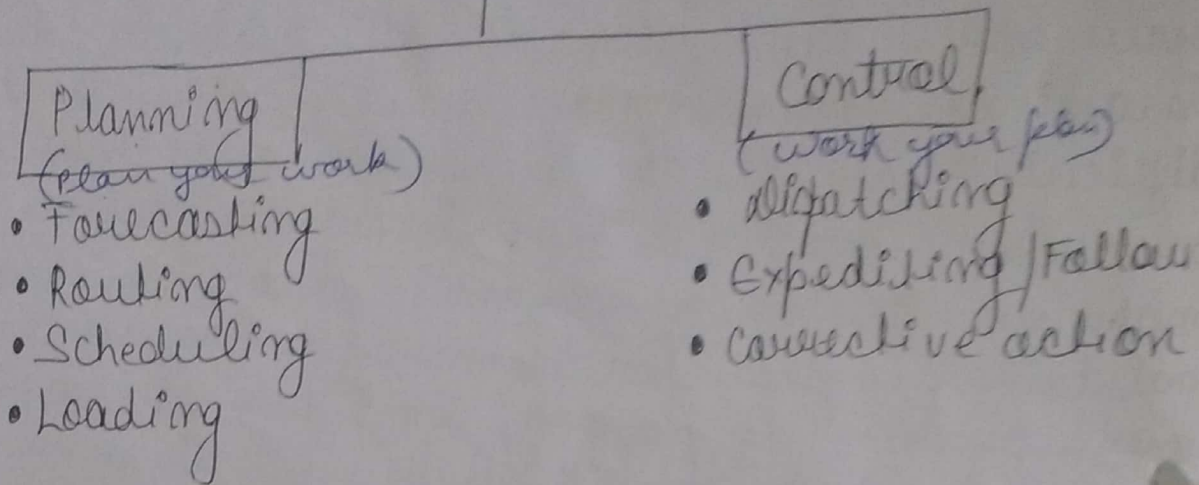 Planning
(plan your work)
• Forecasting
• Routing
• Scheduling
• Loading
Control
(work your plan)
• Dispatching
• Expediting/Follow
• Corrective action